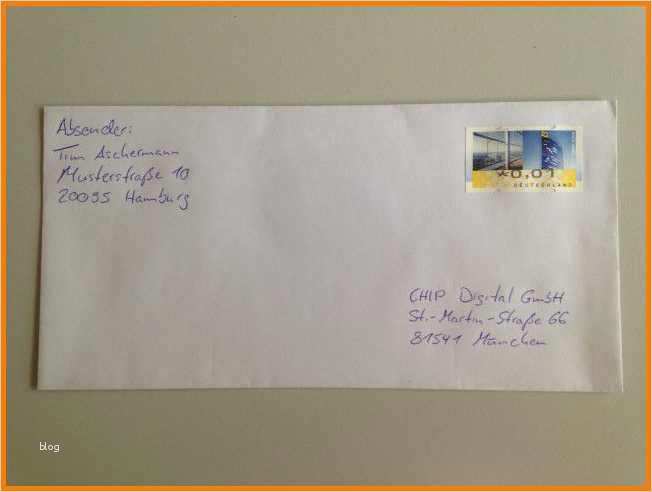 Absender:
Tim Aschermann
Musterstraße 10
20095 Hamburg
*0,01
DEUTSCHLAND
CHIP Digital GmbH
St.-Martin-Straße 66
81541 München
blog